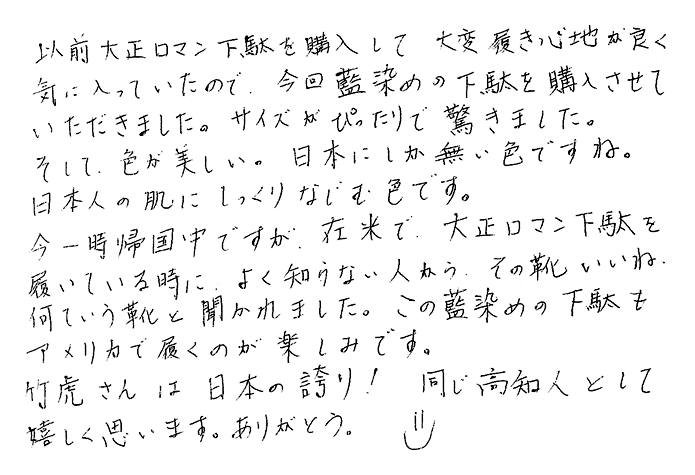 以前大正ロマン下駄を購入して 大変履き心地が良く
気に入っていたので、今回藍染めの下駄を購入させて
いただきました。サイズがぴったりで驚きました。
そして、色が美しい。日本にしか無い色ですね。
日本人の肌にしっくりなじむ色です。
今一時帰国中ですが、在米で、大正ロマン下駄を
履いている時に、よく知らない人から、その靴いいね、
何ていう靴と聞かれました。この藍染めの下駄も
アメリカで履くのが楽しみです。
竹虎さんは日本の誇り! 同じ高知人として
嬉しく思います。ありがとう。